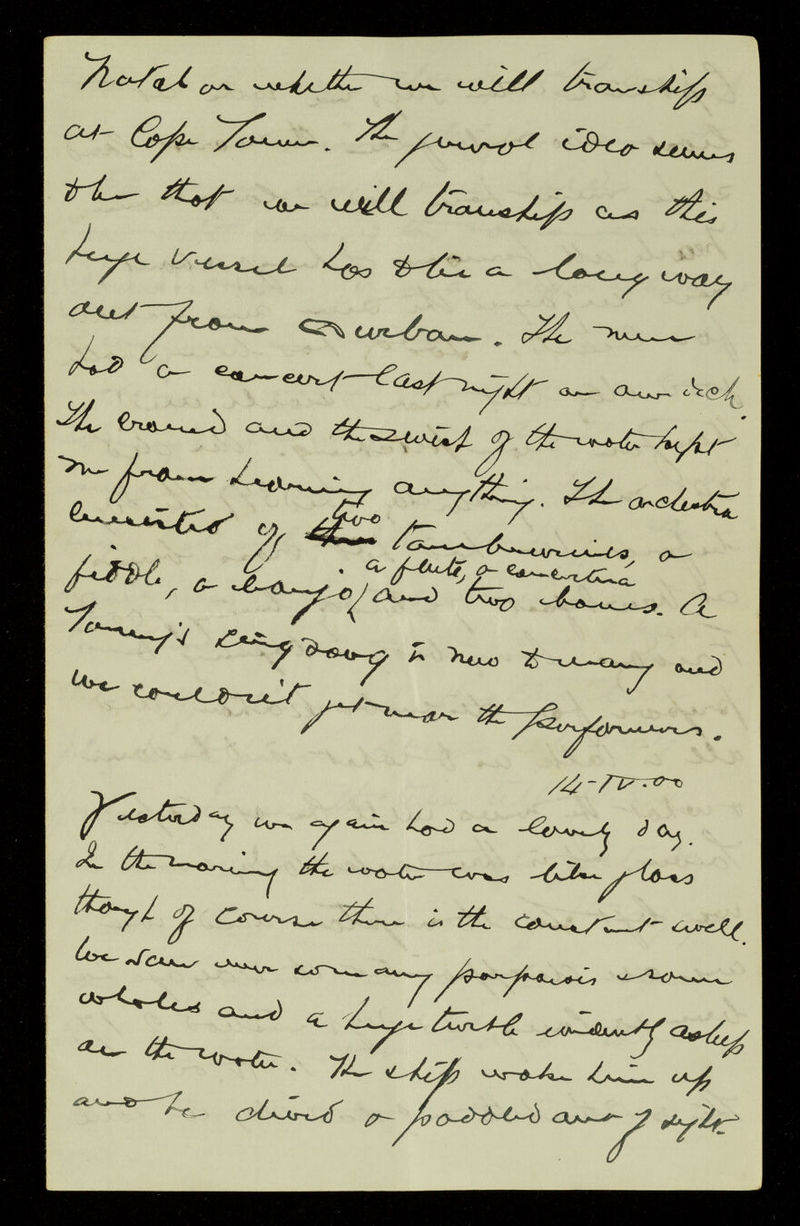 Natal or whether we will tranship
at Cape Town. The general idea seems
to be that we will tranship as this
huge vessel has to lie a long way
out from Durban. The men
had a concert last night on our deck.
The crowd and the swish of the water kept
me from hearing anything. The orchestra
consisted of two tambourines, a
fiddle, a banjo, a flute, a concertina and two bones. A
Tommy's sing song is new to many and
we couldn't get near the performers.
14-IV.00
Yesterday we again had a lovely day.
In the morning the water was like glass
though of course there is the constant swell.
We saw ever so many porpoises & some
whales and a huge turtle evidently asleep
on the water. The ship woke him up
and he dived & paddled out of sight.